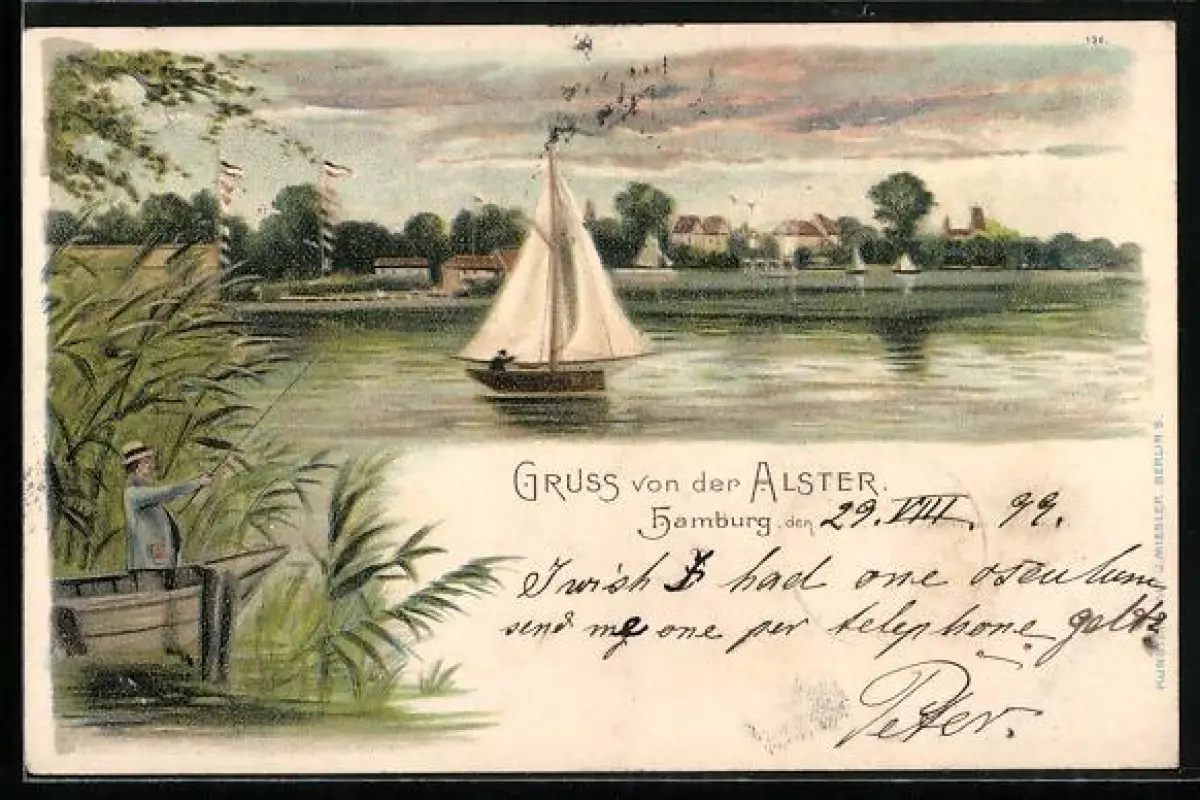 136.
GRUSS von der ALSTER.
Hamburg, den 29. VIII. 99.
I wish I had one osculum
send me one per telephone
Peter.
J. MIESLER, BERLIN S.